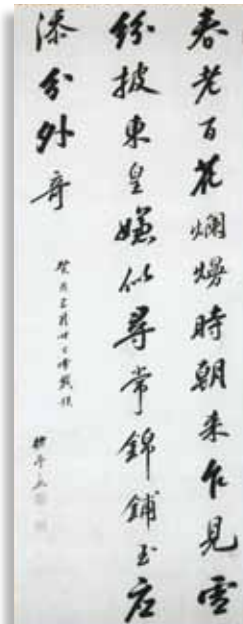 春老百花爛熳時朝来乍見雪
紛披東皇嫌似尋常錦鋪玉店
添分外奇